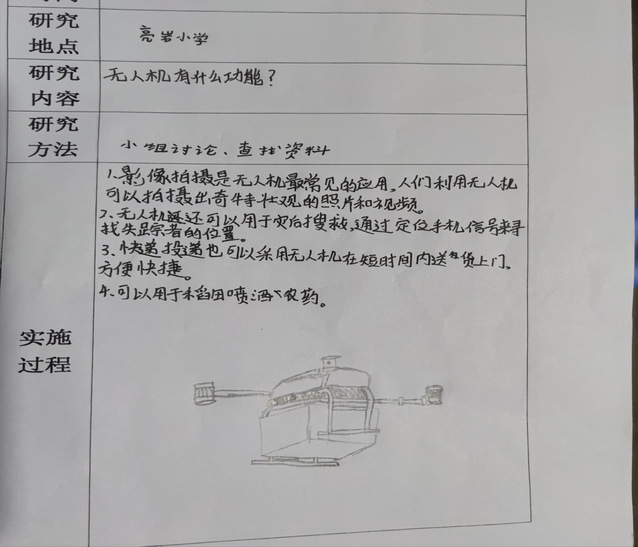 研究
地点
亮岩小学
研究
内容
无人机有什么功能?
研究
方法
小组讨论、查找资料
实施
过程
1、影像拍摄是无人机最常见的应用,人们利用无人机
可以拍摄出奇特壮观的照片和视频。
2、无人机还可以用于灾后搜救,通过定位手机信号来寻
找失踪者的位置。
3、快递投递也可以采用无人机在短时间内送货上门,
方便快捷。
4、可以用于稻田喷洒农药。